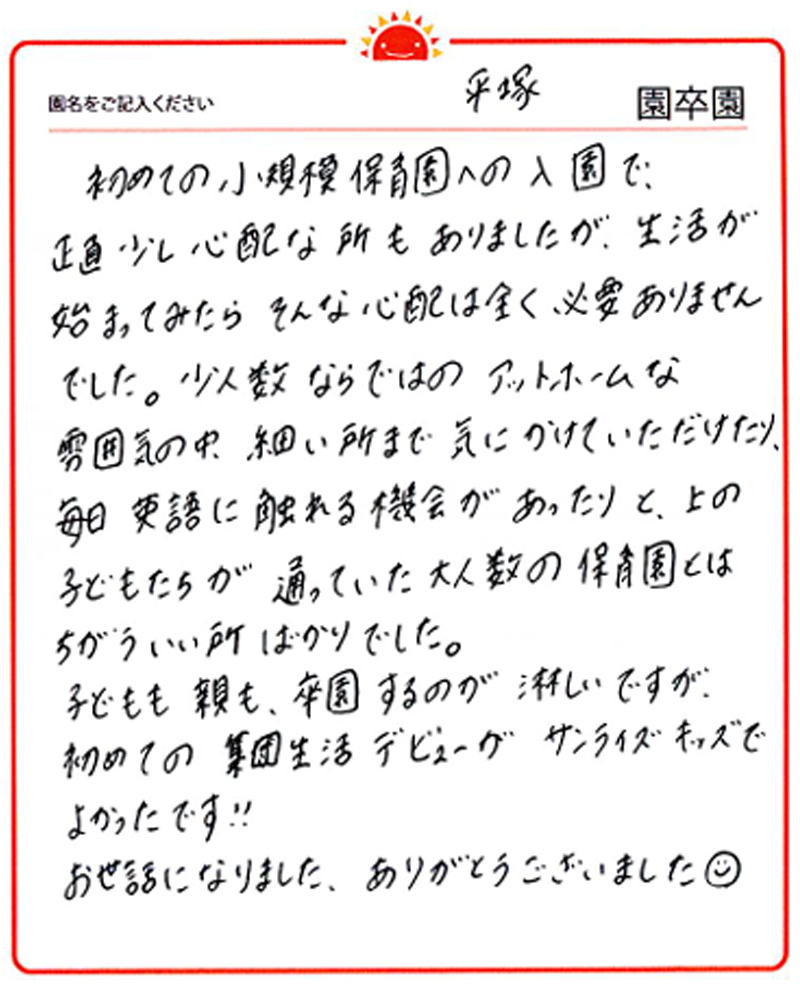 園名をご記入ください 平塚 園卒園
初めての小規模保育園への入園で、
正直少し心配な所もありましたが、生活が
始まってみたらそんな心配は全く必要ありません
でした。少人数ならではのアットホームな
雰囲気の中、細い所まで気にかけていただけたり、
毎日英語に触れる機会があったりと、上の
子どもたちが通っていた大人数の保育園とは
ちがういい所ばかりでした。
子どもも親も、卒園するのが淋しいですが、
初めての集団生活デビューがサンライズキッズで
よかったです!!
お世話になりました、ありがとうございました☺